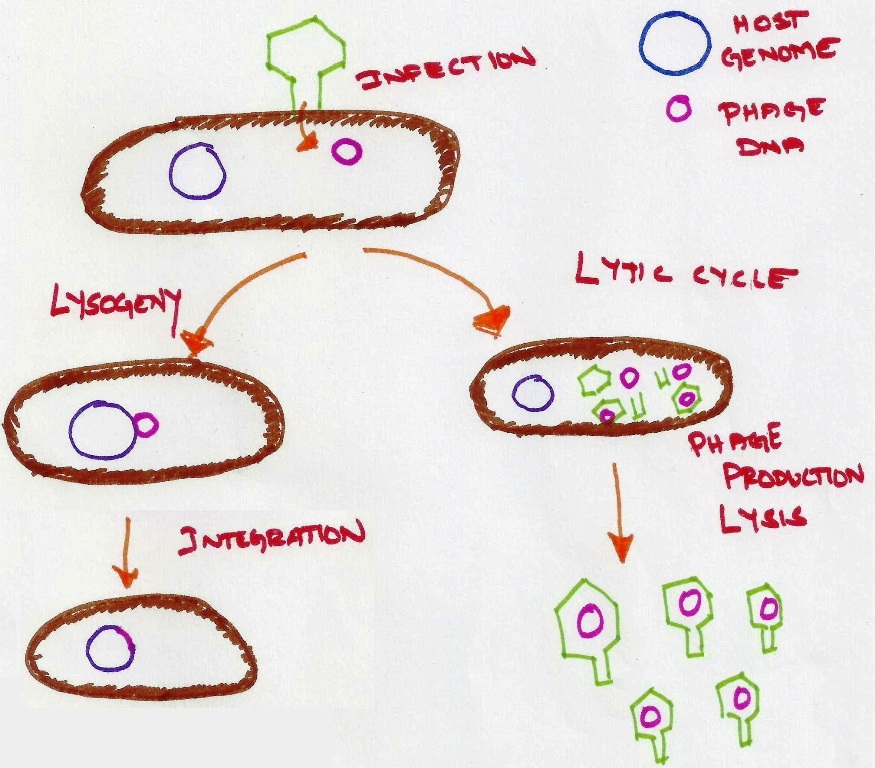 HOST
GENOME
INFECTION
PHAGE
DNA
LYTIC CYCLE
LYSOGENY
PHAGE
PRODUCTION
LYSIS
INTEGRATION